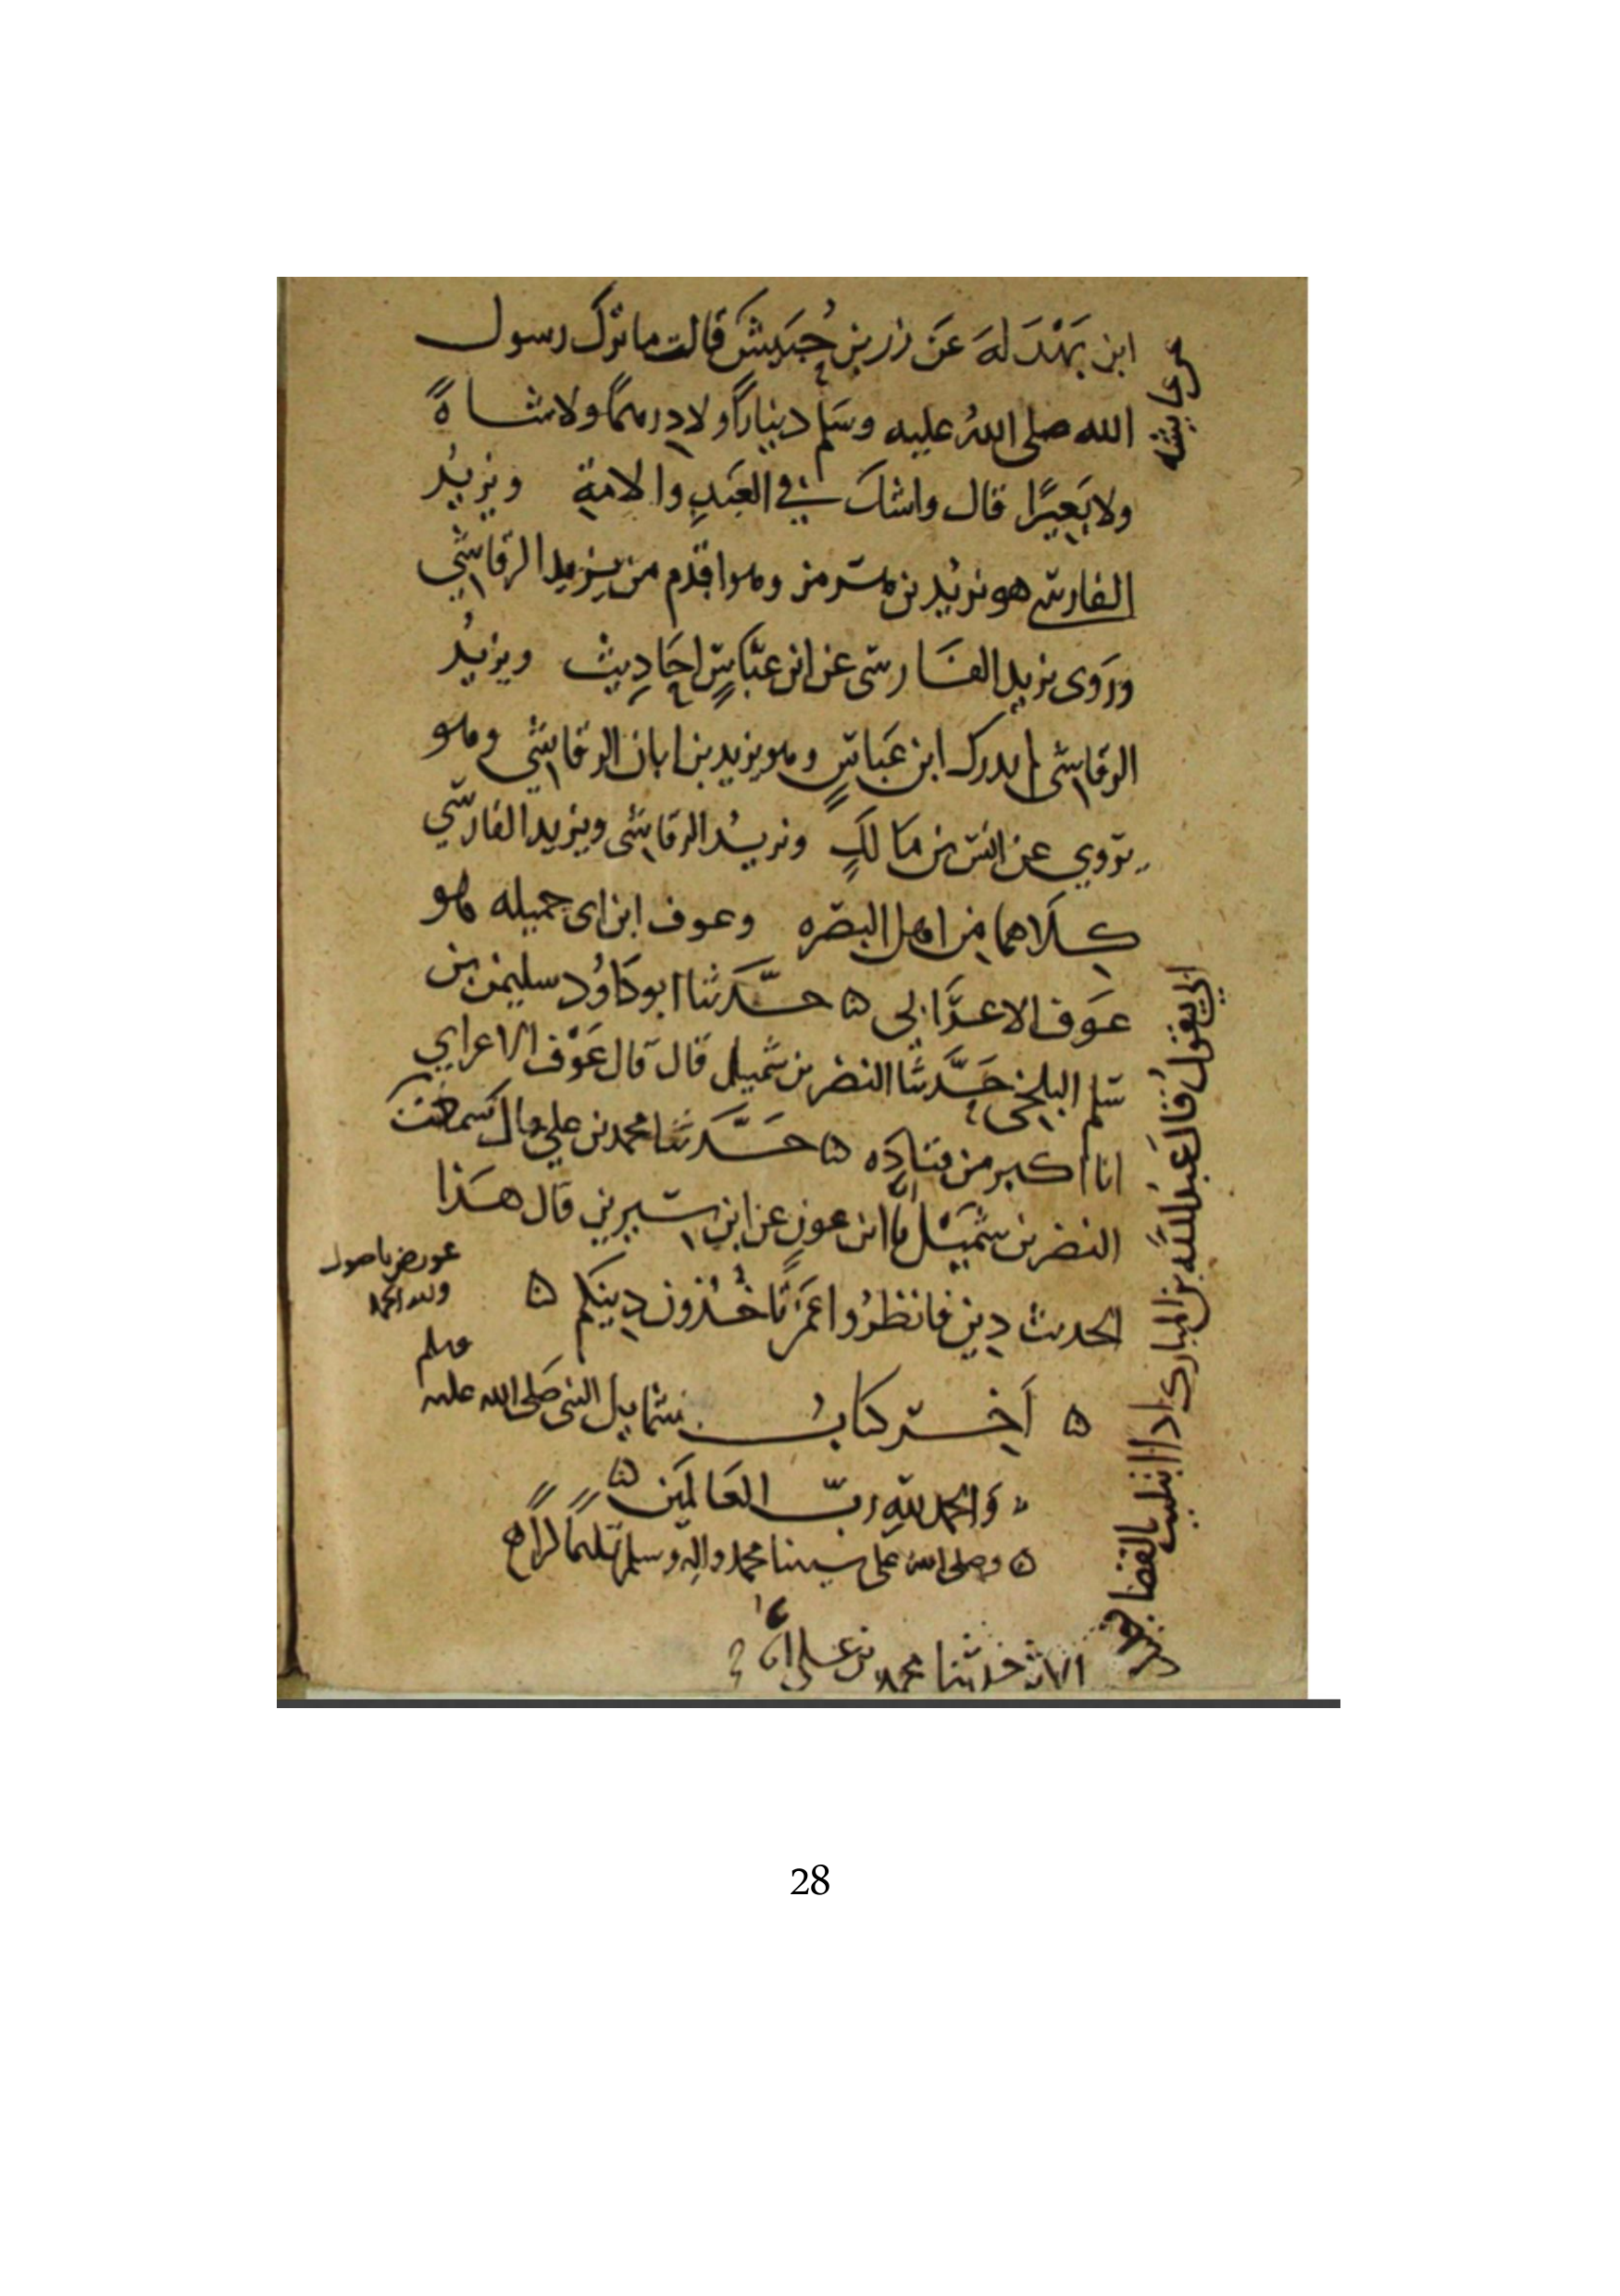 ابن بَهْدَلَةَ عَن زر بن حُبَيش قالت ما ترك رسول
الله صلى اللهُ عليه وسَلم دينارًا ولا دِرهمًا ولا شاةً
ولا بَعِيرًا قال واشك في العَبدِ والامَةِ ويزيدُ
الفارسي هو يزيد بن هرمز وهو اقدم من يزيد الرقاشي
ورَوى يزيد الفَارسي عن ابن عبَّاسٍ احَادِيث ويزيدُ
الرقاشي لم يدرك ابن عَباسٍ وهو يزيد بن ابان الرقاشي وهو
يَروي عن انس بن مَالكٍ ويزيدُ الرقاشي ويزيد الفارسي
كِلَاهما مِن اهل البصره وعوف ابن ابى جميله هو
عَوف الاعرَابى ه حدَّثنا ابو دَاوُد سليمن بن
سَلم البلخي حَدَّثنا النضر بن شميل قال قال عَوْف الاعرابي
انا اكبر من قتادَه ه حَدَّثنا محمد بن علي قال سمعت
النضر بن شُمَيْل انا ابن عونٍ عن ابن سيرين قال هَذا
الحديث دِين فانظرُوا عَمَّن تَاخُذون دِينكم ه
ه آخِر كتابُ شمايل النبى صَلى الله عليه
وسلم
وَالحمد للهِ ربّ العَالمَين ه
ه وصلى الله على سيدنا محمد واله وسلم تسليما كثيرًا
عن عايشه
ابي يقولُ قال عَبدُ اللَّه بن المبارك اذا ابتليت بالقضا
الاثر حدثنا محمد بن علي
عورض باصول
ولله الحمد
28